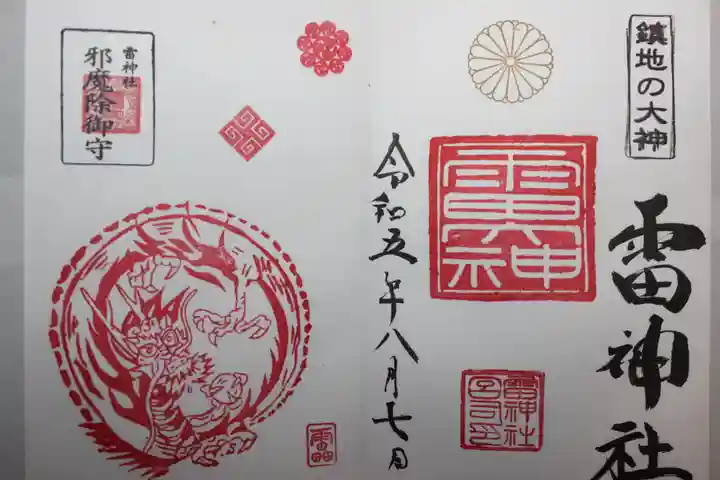 鎮地の大神
雷神社
令和五年八月七日
雷神社
邪魔除御守